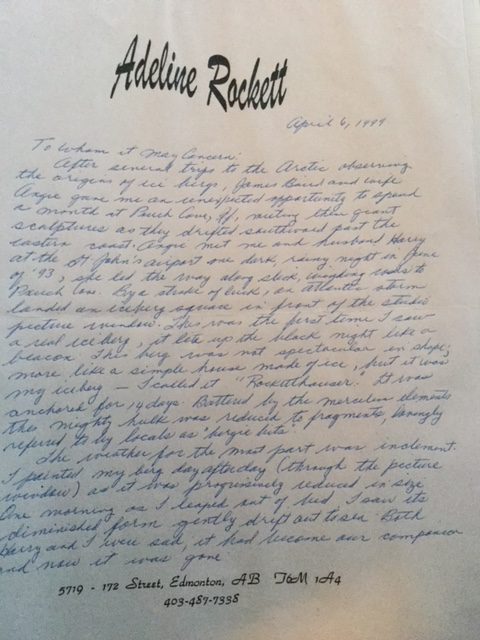 Adeline Rockett
April 6, 1999
To Whom it May Concern:
After several trips to the Arctic observing
the origins of ice bergs, James Baird and wife
Angie gave me an unexpected opportunity to spend
a month at Pouch Cove, Nf, visiting these giant
sculptures as they drifted southward past the
eastern coast. Angie met me and husband Harry
at the St John's airport one dark, rainy night in June
of '93; she led the way along slick, winding roads to
Pouch Cove. By a stroke of luck, an Atlantic storm
landed an iceberg square in front of the studio
picture window. This was the first time I saw
a real iceberg, it lit up the black night like a
beacon. The berg was not spectacular in shape;
more like a simple house made of ice, but it was
my iceberg – I called it "Rocketthauser. It was
anchored for 14 days. Battered by the merciless elements
this mighty hulk was reduced to fragments, lovingly
referred to by locals as "bergie bits"
The weather for the most part was inclement.
I painted my berg day after day (through the picture
window) as it was progressively reduced in size
One morning as I leaped out of bed I saw its
diminished form gently drift out to sea. Both
Harry and I were sad, it had become our companion
and now it was gone
5719 - 172 Street, Edmonton, AB T6M 1A4
403-487-7338